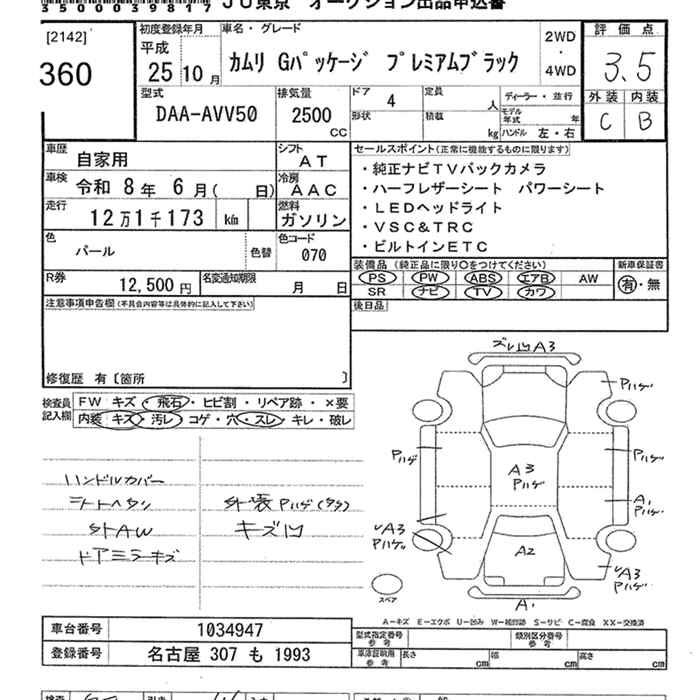 35000039817 JU東京 オークション出品申込書
[2142]
360
初度登録年月
平成 25年 10月
車名・グレード
カムリ Gパッケージ プレミアムブラック
2WD
・
4WD
評価点
3.5
外装 内装
C B
型式
DAA-AVV50
排気量
2500
CC
ドア 4
定員 人
形状
積載 kg
ディーラー・並行
モデル年式 年
ハンドル 左・右
車歴 自家用
シフト AT
車検 令和 8年 6月( 日)
冷房 AAC
走行 12万1千173 km
燃料 ガソリン
色 パール 色替
色コード 070
R券 12,500 円
名変通知期限 月 日
セールスポイント(正常に機能するものに限ります)
・純正ナビTVバックカメラ
・ハーフレザーシート パワーシート
・LEDヘッドライト
・VSC&TRC
・ビルトインETC
装備品 (純正品に限り○をつけてください)
新車保証書
PS PW ABS エアB AW
SR ナビ TV カワ
有・無
後日品
注意事項申告欄(不具合内容等は具体的に記入して下さい)
修復歴 有〔箇所 〕
検査員記入欄
FW キズ・飛石・ヒビ割・リペア跡・×要
内装 キズ・汚レ・コゲ・穴・スレ・キレ・破レ
ハンドルカバー
シートヘタリ
外AW
ドアミラーキズ
外装Pハゲ(タタ)
キズ凹
ズレ凹A3
Pハゲ
Pハゲ
Pハゲ
A3
Pハゲ
A1
Pハゲ
A3
Pハゲ
A2
A3
Pハゲ
A1
スペア
A-キズ E-エクボ U-凹み W-補修跡 S-サビ C-腐食 XX-交換済
車台番号 1034947
登録番号 名古屋 307 も 1993
型式指定番号 参考
類別区分番号 参考
車庫証明用 参考
長さ cm
幅 cm
高さ cm